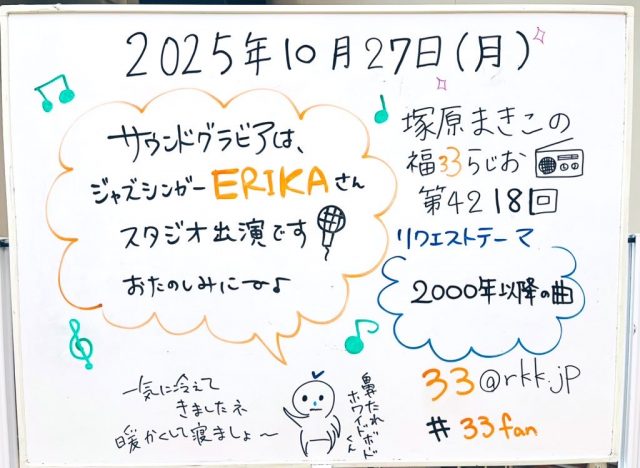 2025年10月27日(月)
サウンドグラビアは、
ジャズシンガーERIKAさん
スタジオ出演です
おたのしみにー♪
塚原まきこの
福33らじお
第4218回
リクエストテーマ
2000年以降の曲
33@rkk.jp
#33fan
一気に冷えて
きましたネ
暖かくして寝ましょ〜
鼻たれ
ホワイトボード
くん